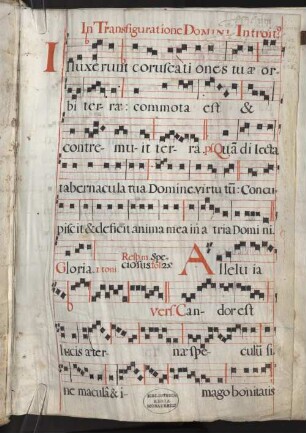 In Transfiguratione Domini. Introit9
Illuxerunt coruscationes tuæ or-
bi terræ: commota est &
contre-mu-it ter-ra. ps Quã dilecta
tabernacula tua Domine virtutũ: Concu
piscit & deficit anima mea in atria Domini.
Gloria. 1. toni
Respm Spe-
ciosus fol. 28
Alleluia
vers9 Can-dor est
lucis æter-næ spe-culũ si
ne macula & i-mago bonitatis
BIBLIOTHECA
REGIA
MONACENSIS